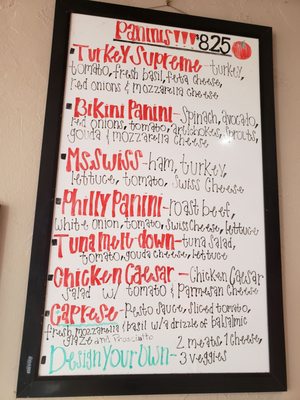 Paninis $8.25
Turkey Supreme-turkey,
tomato, fresh basil, feta cheese,
red onions & mozzarella cheese
Bikini Panini-Spinach, avocado,
red onions, tomato, artichokes, sprouts,
gouda & mozzarella cheese
Ms. Swiss-ham, turkey,
lettuce, tomato, Swiss Cheese
Philly Panini-roast beef,
white onion, tomato, Swiss Cheese, lettuce
Tuna Melt-down-tuna Salad,
tomato, gouda cheese, lettuce
Chicken Caesar-Chicken Caesar
Salad w/ tomato & Parmesan Cheese
Caprese-Pesto Sauce, Sliced tomato,
fresh mozzarella & basil w/a drizzle of balsalmic
glaze and Prosciutto
Design Your Own- 2 meats, 1 cheese,
3 veggies